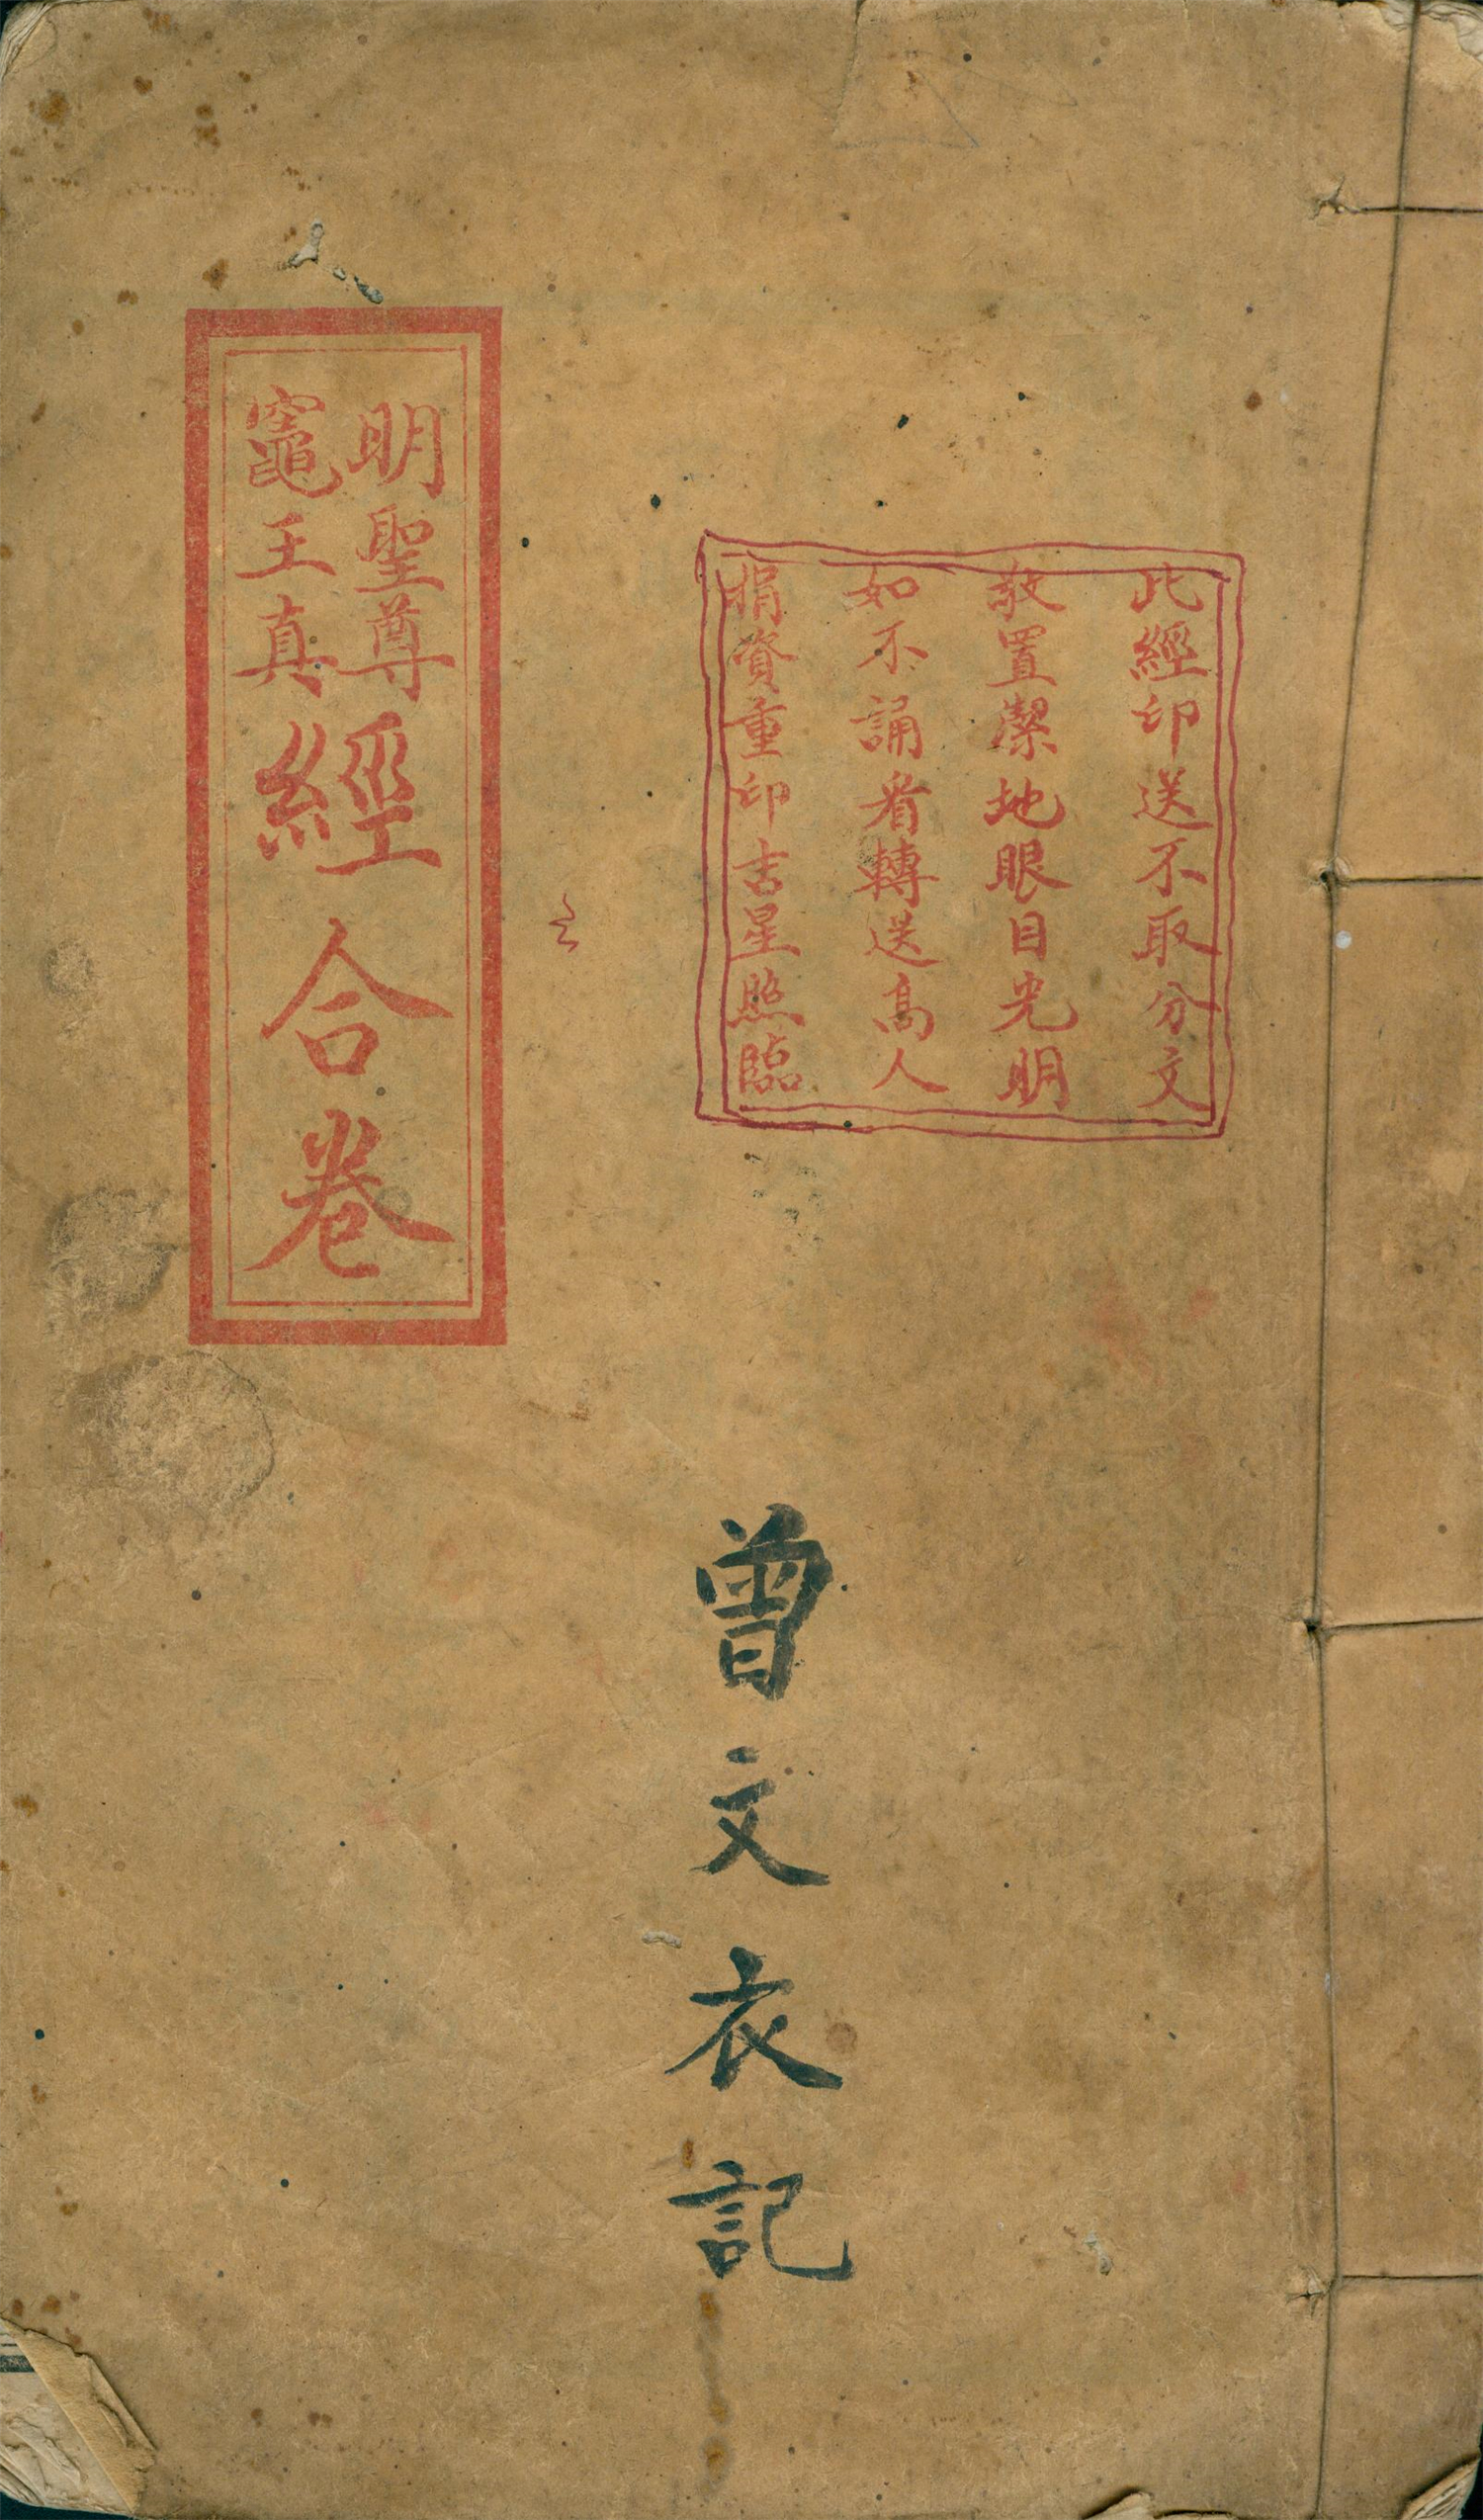 此經印送不取分文
敬置潔地眼目光明
如不誦看轉送高人
捐資重印吉星照臨
明聖尊
竈王真
經合卷
曾文衣記